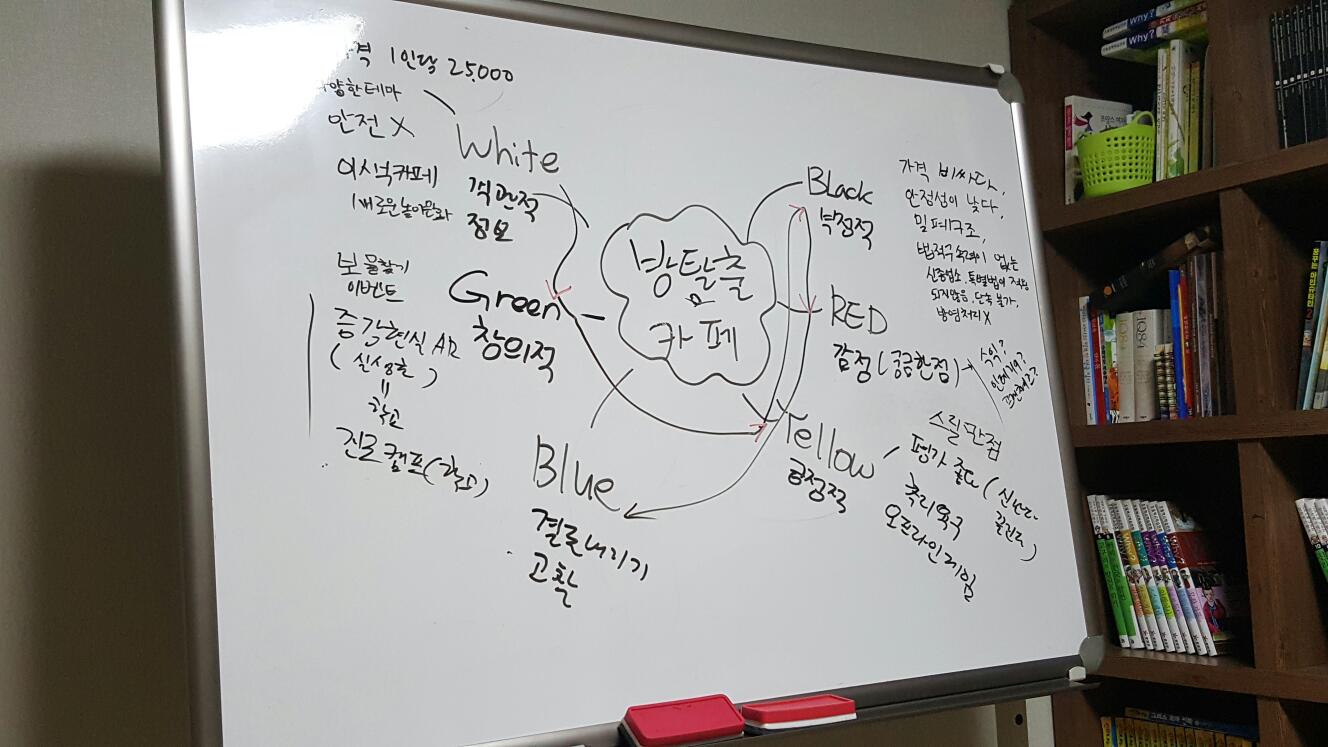 1인당 25,000
양한테마
안전 X
이색카페
새로운놀이문화
White
객관적
정보
보물찾기
이벤트
증강현실 AR
(실생활)
=
학교
진로캠프(학교)
Green
창의적
Blue
결론내리기
고찰
방탈출
카페
Black
부정적
가격 비싸다,
안정성이 낮다,
밀폐구조,
법적구속력이 없는
신종업소, 특별법에 적용
되지않음, 단속 불가,
방염처리 X
RED
감정(궁금한점)
수익?
언제가?
Yellow
긍정적
스릴만점
평가 좋다(신난다
추리욕구
오프라인게임
Why?
Why?
1Q84